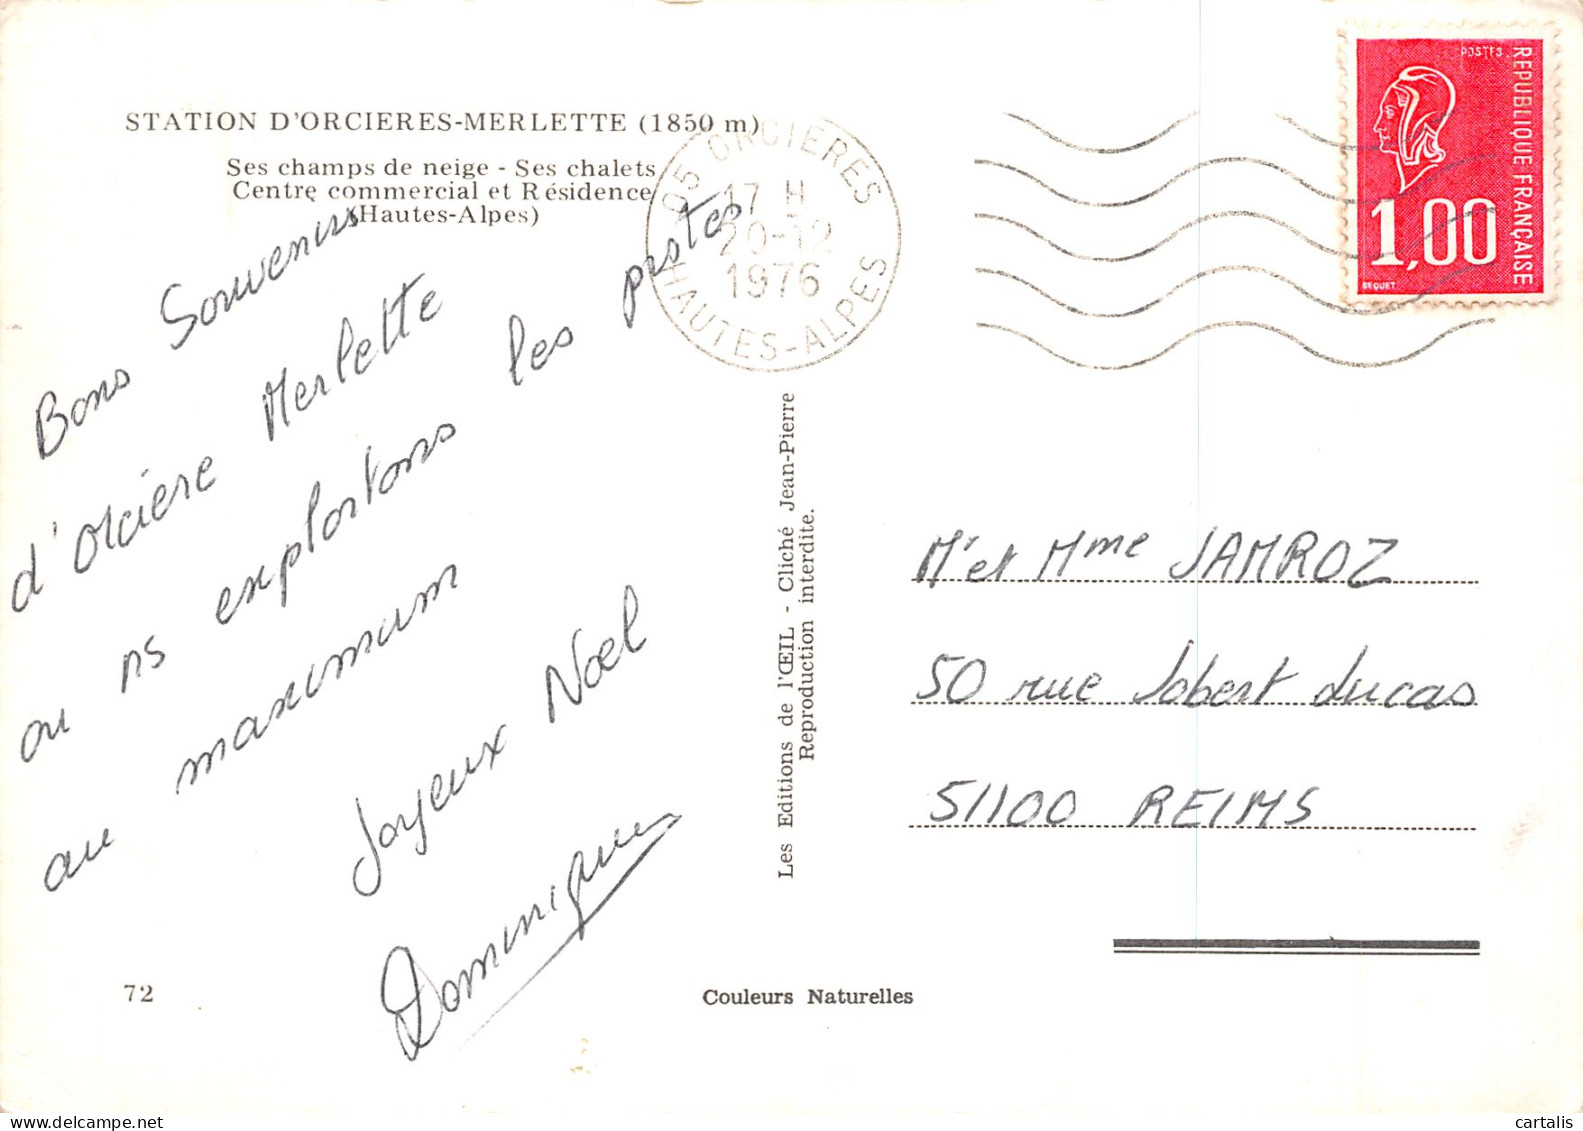 STATION D'ORCIERES-MERLETTE (1850 m)
Ses champs de neige - Ses chalets
Centre commercial et Résidence
(Hautes-Alpes)
Bons Souvenirs
d'Orcière Merlette
ou ns exploitons les pistes
au maximum
Joyeux Noël
Dominique
72
05 ORCIERES
17 H
20-12
1976
HAUTES-ALPES
POSTES
REPUBLIQUE FRANÇAISE
1,00
BEQUET
Les Editions de l'ŒIL - Cliché Jean-Pierre
Reproduction interdite.
Mr et Mme JAMROZ
50 rue Jobert Lucas
51100 REIMS
Couleurs Naturelles
cartalis